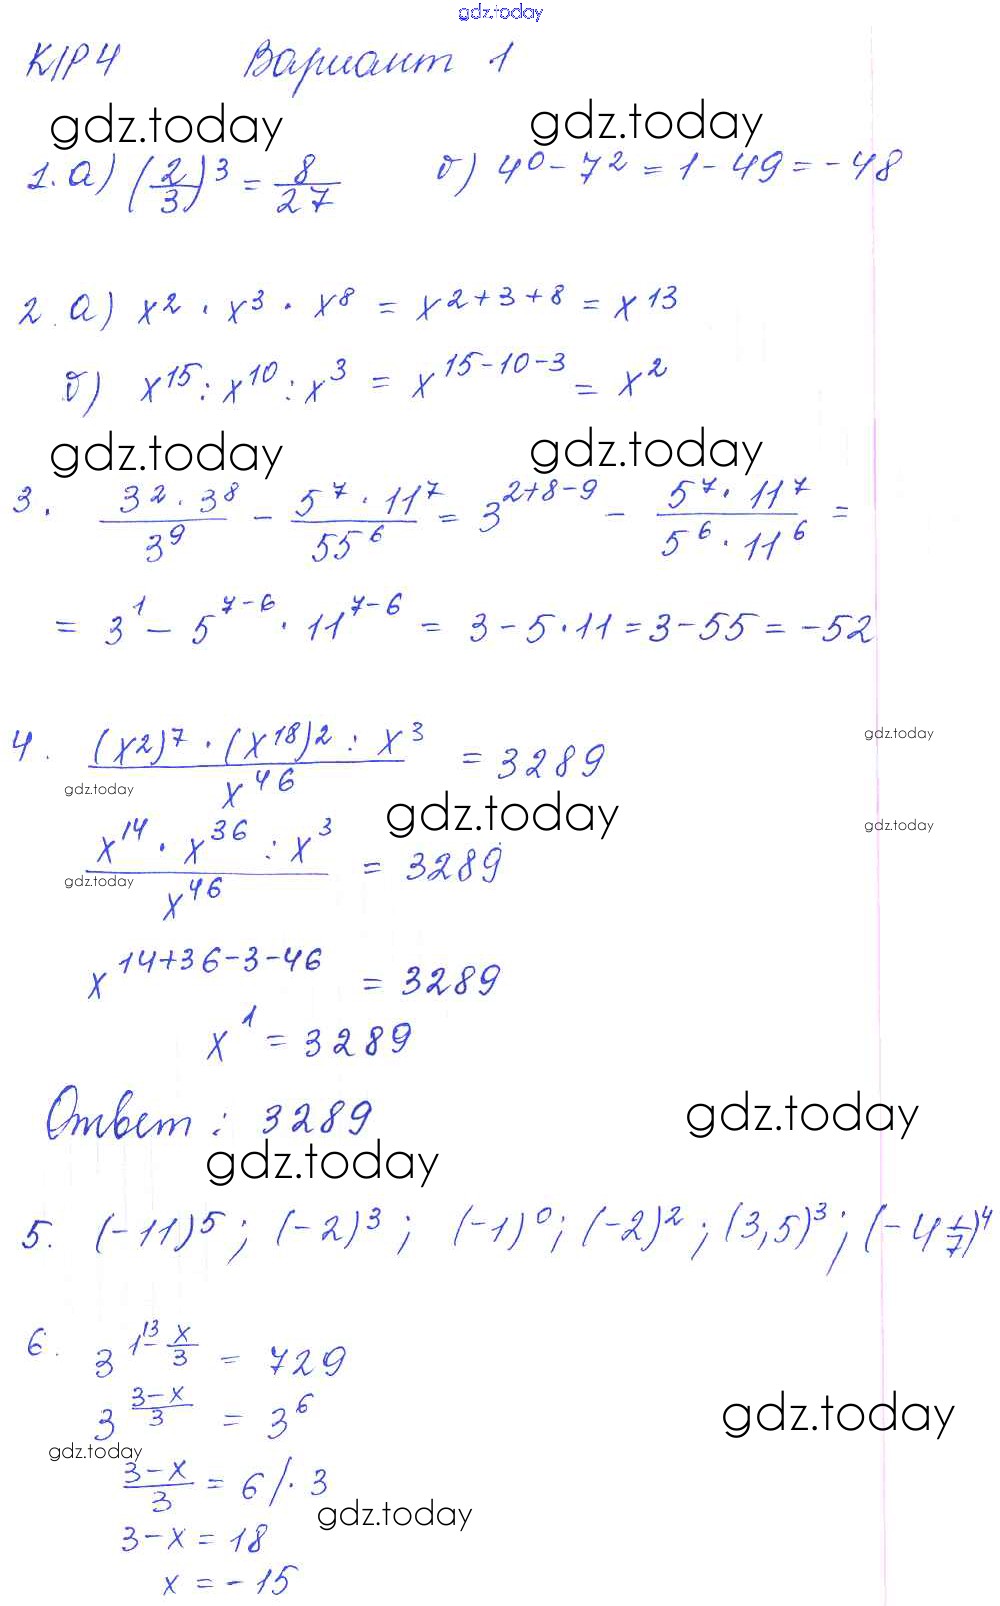 gdz.today
К/Р 4 Вариант 1
gdz.today gdz.today
1. а) (2/3)^3 = 8/27 б) 4^0 - 7^2 = 1 - 49 = -48
2. а) x^2 · x^3 · x^8 = x^(2+3+8) = x^13
б) x^15 : x^10 : x^3 = x^(15-10-3) = x^2
gdz.today gdz.today
3. (3^2 · 3^8)/3^9 - (5^7 · 11^7)/55^6 = 3^(2+8-9) - (5^7 · 11^7)/(5^6 · 11^6) =
= 3^1 - 5^(7-6) · 11^(7-6) = 3 - 5 · 11 = 3 - 55 = -52
4. ((x^2)^7 · (x^18)^2 : x^3)/x^46 = 3289
gdz.today
gdz.today
gdz.today
gdz.today
(x^14 · x^36 : x^3)/x^46 = 3289
gdz.today
x^(14+36-3-46) = 3289
x^1 = 3289
Ответ: 3289
gdz.today
gdz.today
5. (-11)^5; (-2)^3; (-1)^0; (-2)^2; (3,5)^3; (-4 1/7)^4
6. 3^(1^(\3) - x/3) = 729
3^((3-x)/3) = 3^6
gdz.today
gdz.today
(3-x)/3 = 6 /· 3
gdz.today
3 - x = 18
x = -15